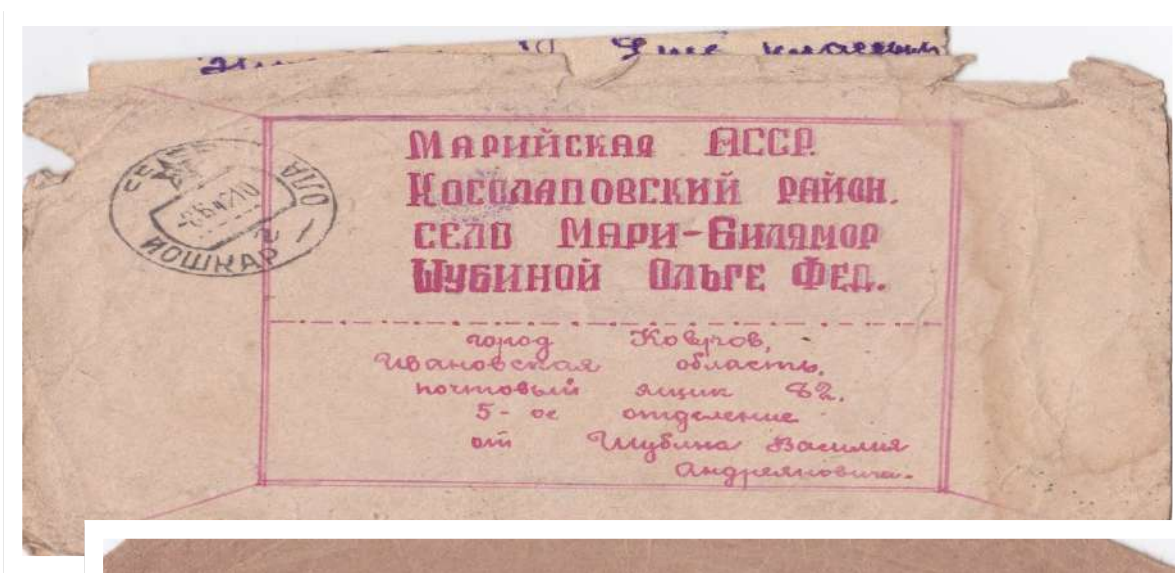 Ещё
МАРИЙСКАЯ АССР.
КОСОЛАПОВСКИЙ РАЙОН.
СЕЛО МАРИ-БИЛЯМОР
ШУБИНОЙ ОЛЬГЕ ФЕД.
город Ковров,
Ивановская область,
почтовый ящик 82.
5-ое отделение
от Шубина Василия
Андреяновича.
ЙОШКАР ОЛА